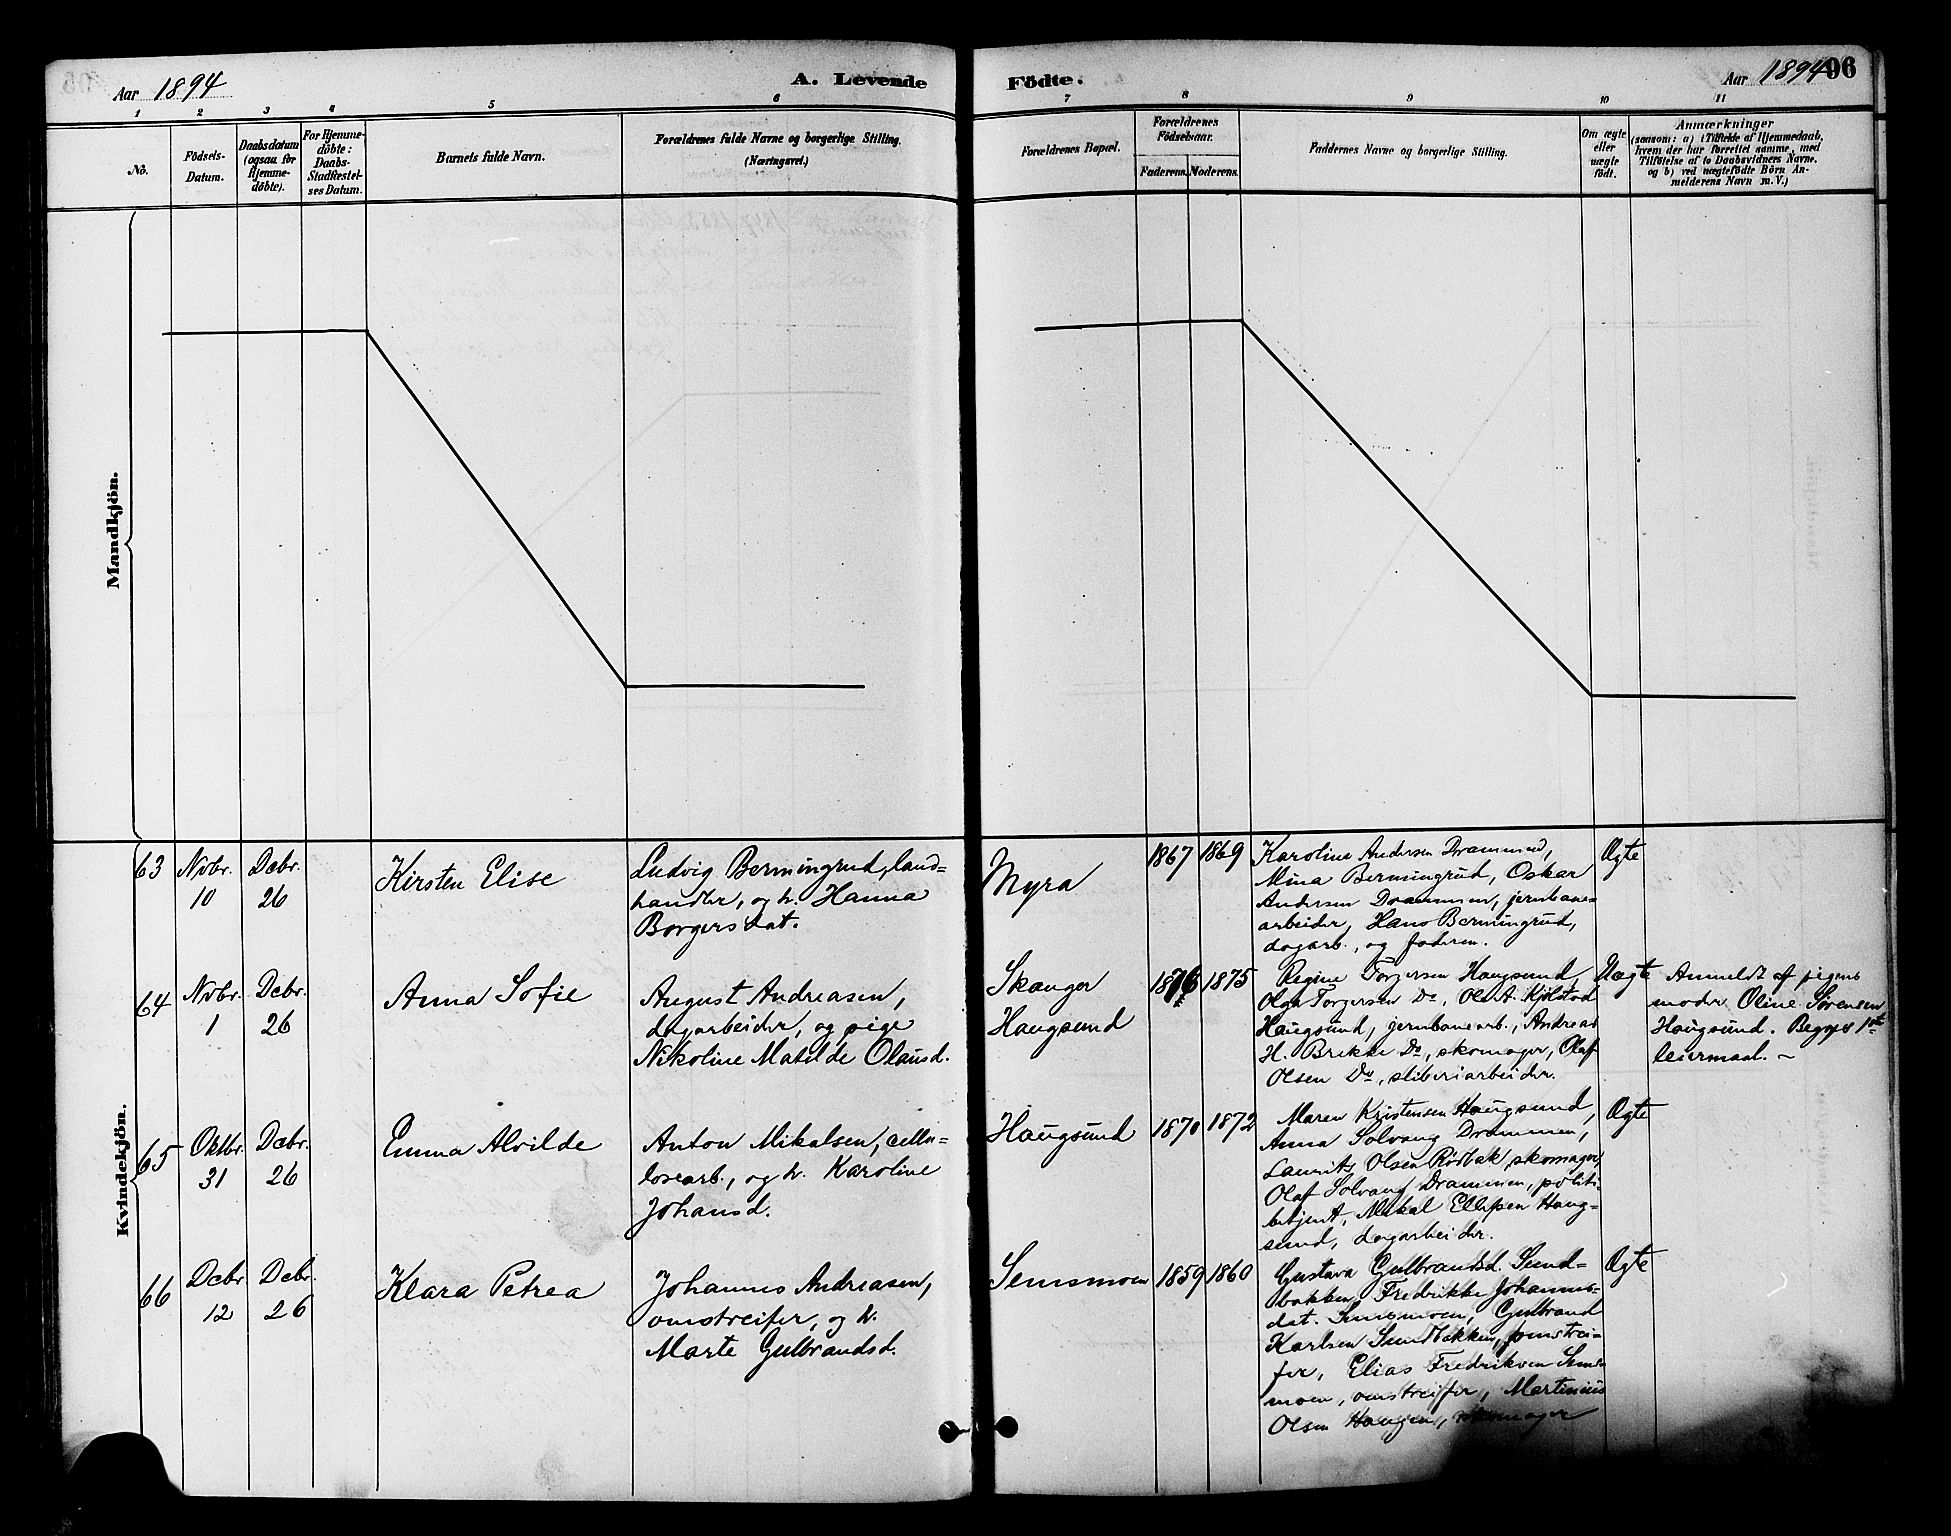 Aar 1894
A. Levende
Födte.
Aar 1894
96
1 2 3 4 5 6 7 8 9 10 11
No.
Födsels-
Datum.
Daabsdatum
(ogsaa for
Hjemme-
döbte).
For Hjemme-
döbte:
Daabs-
Stadfæstel-
ses Datum.
Barnets fulde Navn.
Forældrenes fulde Navne og borgerlige Stilling.
(Næringsvei.)
Forældrenes Bopæl.
Forældrenes
Födselsaar.
Faderens. Moderens.
Faddernes Navne og borgerlige Stilling.
Om ægte
eller
uægte
født.
Anmærkninger
(saasom: a) i Tilfælde af Hjemmedaab,
hvem der har forrettet samme, med
Tilföielse af to Daabsvidners Navne,
og b) ved uægtefödte Börn An-
melderens Navn m. V.)
Mandkjön.
Kvindekjön.
63
Nvbr.
10
Dcbr.
26
Kirsten Elise
Ludvig Bermingrud, land-
handler, og h. Hanna
Borgersdat.
Myra
1867 1869
Karoline Andersen Drammen,
Mina Bermingrud, Oskar
Andersen Drammen, jernbane-
arbeider, Hans Bermingrud,
dagarb., og faderen.
Ægte
64
Nvbr.
1
Dcbr.
26
Anna Sofie
August Andreasen,
dagarbeider, og pige
Nikoline Matilde Olausd.
Skanger
Haugsund
1876 1875
Regine Torgersen Haugsund,
Olga Torgersen Do, Ole A. Kjölstad
Haugsund, jernbanearb., Andreas
H. Brekke Do, skomager, Olaf
Olsen Do, sliberiarbeider.
Uægte
Anmeldt af pigens
moder Oline Sørensen
Haugsund. Begges 1ste
leiermaal. ~
65
Oktbr.
31
Dcbr.
26
Emma Alvilde
Anton Mikalsen, cellu-
losearb., og h. Karoline
Johansd.
Haugsund
1870 1872
Maren Kristensen Haugsund,
Anna Solvang Drammen,
Laurits Olsen Rödbæk, skomager,
Olaf Solvang Drammen, politi-
betjent, Mikal Ellefsen Haug-
sund, dagarbeider.
Ægte
66
Dcbr
12
Dcbr.
26
Klara Petrea
Johannes Andreasen,
omstreifer, og h.
Marte Gulbrandsd.
Semsmoen
1859 1860
Gustava Gulbrandsd. Sund-
bakken, Fredrikke Johannes-
dat. Semsmoen, Gulbrand
Karlsen Sundbakken, omstrei-
fer, Elias Fredriksen Sems-
moen, omstreifer, Martinius
Olsen Haugen, skomager
Ægte